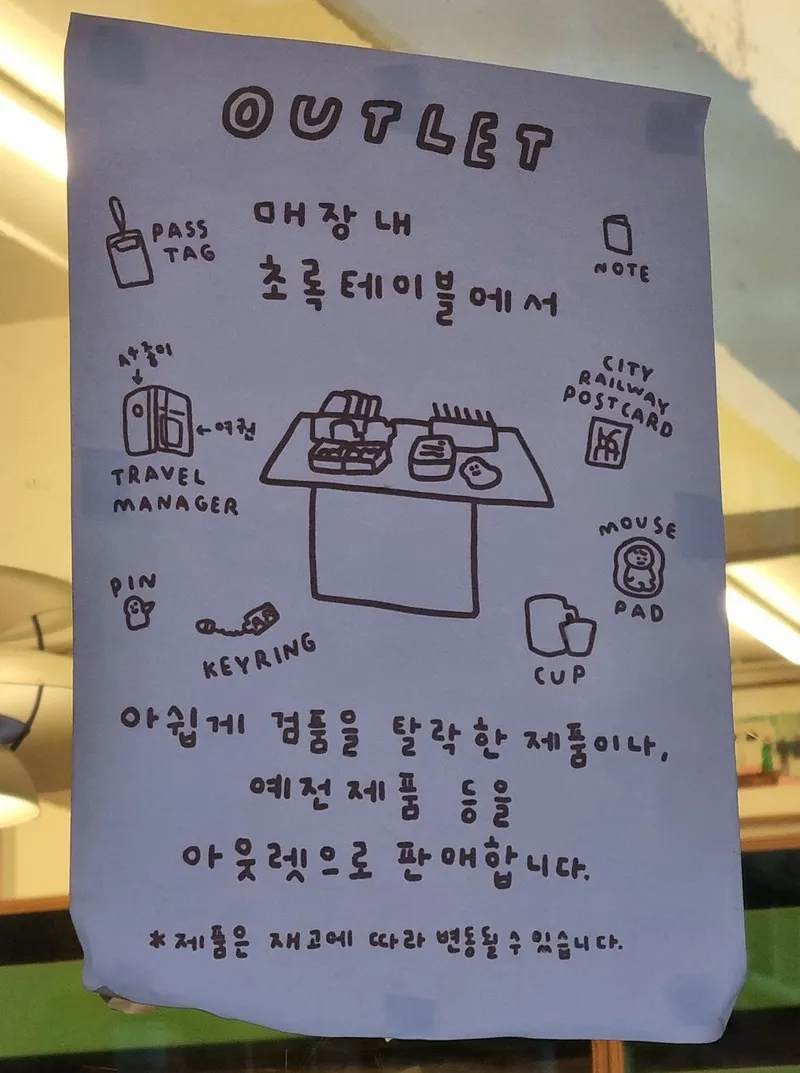 OUTLET
매장 내
초록테이블에서
PASS
TAG
NOTE
A4 종이
←여권
TRAVEL
MANAGER
CITY
RAILWAY
POSTCARD
MOUSE
PAD
PIN
KEYRING
CUP
아쉽게 검품을 탈락한 제품이나,
예전제품 등을
아웃렛으로 판매합니다.
*제품은 재고에 따라 변동될 수 있습니다.